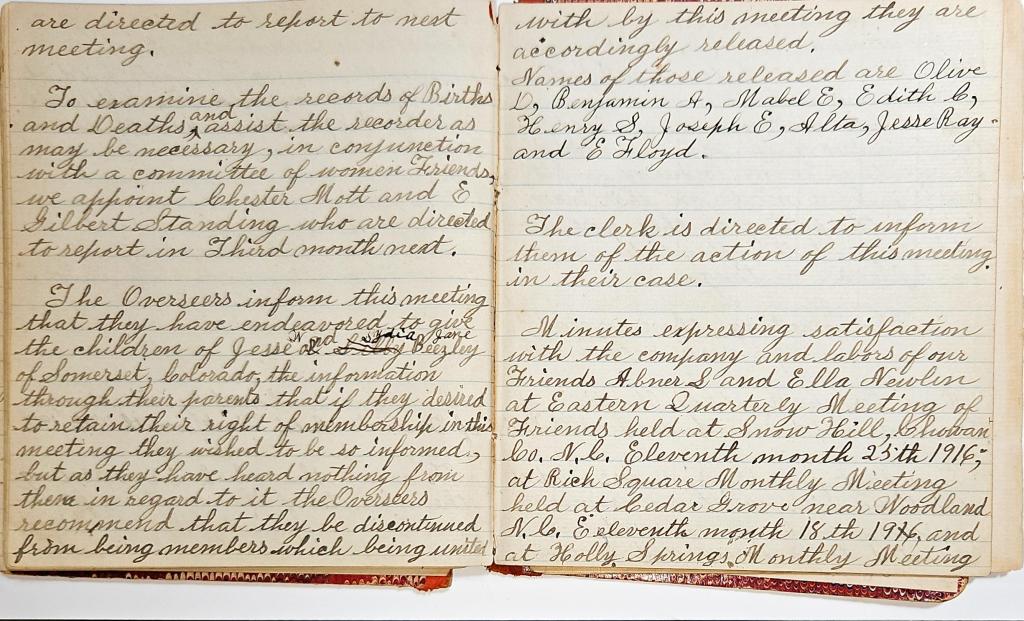 are directed to report to next
meeting.
To examine the records of Births
and Deaths, and assist the recorder as
may be necessary, in conjunction
with a committee of women Friends,
we appoint Chester Mott and E
Gilbert Standing who are directed
to report in Third month next.
The Overseers inform this meeting
that they have endeavored to give
the children of Jesse W and Lydia Jane Beezley
of Somerset, Colorado, the information
through their parents that if they desired
to retain their right of membership in this
meeting they wished to be so informed,
but as they have heard nothing from
them in regard to it the Overseers
recommend that they be discontinued
from being members which being united
with by this meeting they are
accordingly released.
Names of those released are Olive
D, Benjamin A, Mabel E, Edith C,
Henry S, Joseph E, Alta, Jesse Ray
and E Floyd.
The clerk is directed to inform
them of the action of this meeting
in their case.
Minutes expressing satisfaction
with the company and labors of our
Friends Abner S and Ella Newlin
at Eastern Quarterly Meeting of
Friends held at Snow Hill, Chowan
Co. N.C. Eleventh month 25th 1916;
at Rich Square Monthly Meeting
held at Cedar Grove near Woodland
N.C. Eeleventh month 18th 1916, and
at Holly Springs Monthly Meeting